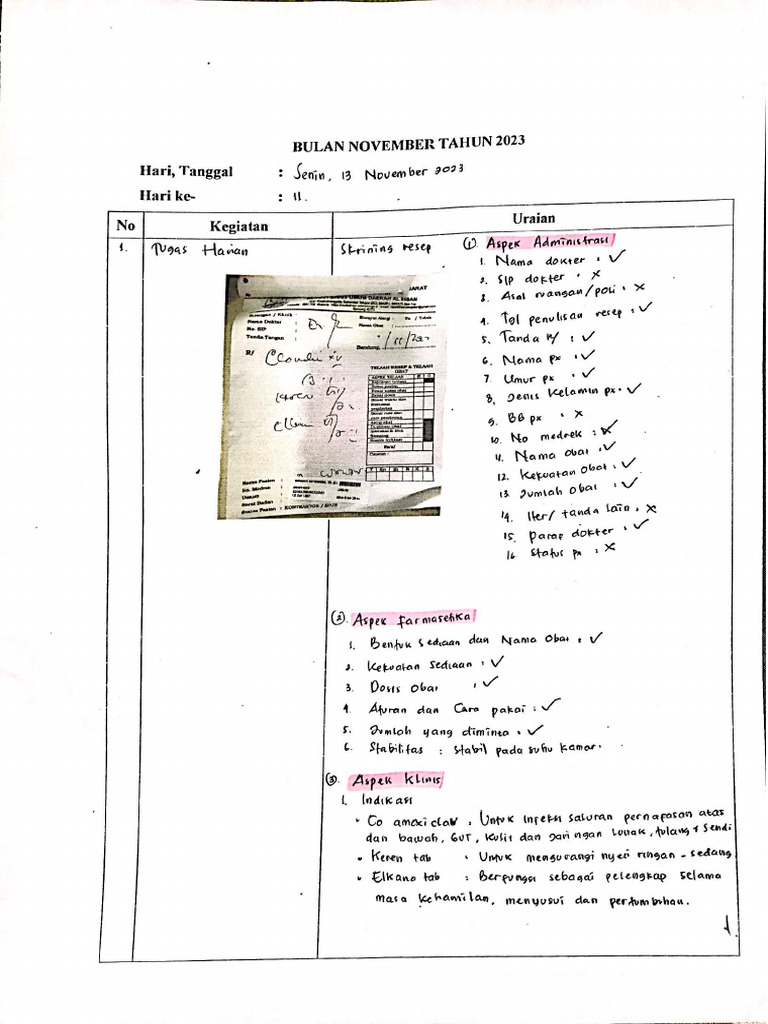 BULAN NOVEMBER TAHUN 2023
Hari, Tanggal : Senin, 13 November 2023
Hari ke- : 11.
No Kegiatan Uraian
1. Tugas Harian Skrining resep
(1) Aspek Administrasi
1. Nama dokter : ✓
2. SIP dokter : ×
3. Asal ruangan/poli : ×
4. Tgl penulisan resep : ✓
5. Tanda R/ : ✓
6. Nama px : ✓
7. Umur px : ✓
8. Jenis Kelamin px : ✓
9. BB px : ×
10. No medrek : ×
11. Nama obat : ✓
12. Kekuatan obat : ✓
13. Jumlah obat : ✓
14. Iter/ tanda lain : ×
15. Paraf dokter : ✓
16. Status px : ×
Nama Dokter
No. SIP
Tanda Tangan :
Bandung,
R/
TELAAH RESEP & TELAAH
OBAT
Nama Pasien
No. Medrek
Umur
Berat Badan
: KONTRAKTOR /
(2) Aspek farmasetika
1. Bentuk sediaan dan Nama Obat : ✓
2. Kekuatan sediaan : ✓
3. Dosis obat : ✓
4. Aturan dan Cara pakai : ✓
5. Jumlah yang diminta : ✓
6. Stabilitas : Stabil pada suhu kamar.
(3). Aspek Klinis
1. Indikasi
• Co amoxiclav : Untuk infeksi saluran pernafasan atas
dan bawah, GUT, kulit dan jaringan lunak, tulang & sendi
• Keren tab : Untuk mengurangi nyeri ringan - sedang
• Elkana tab : Berfungsi sebagai pelengkap selama
masa kehamilan, menyusui dan pertumbuhan.